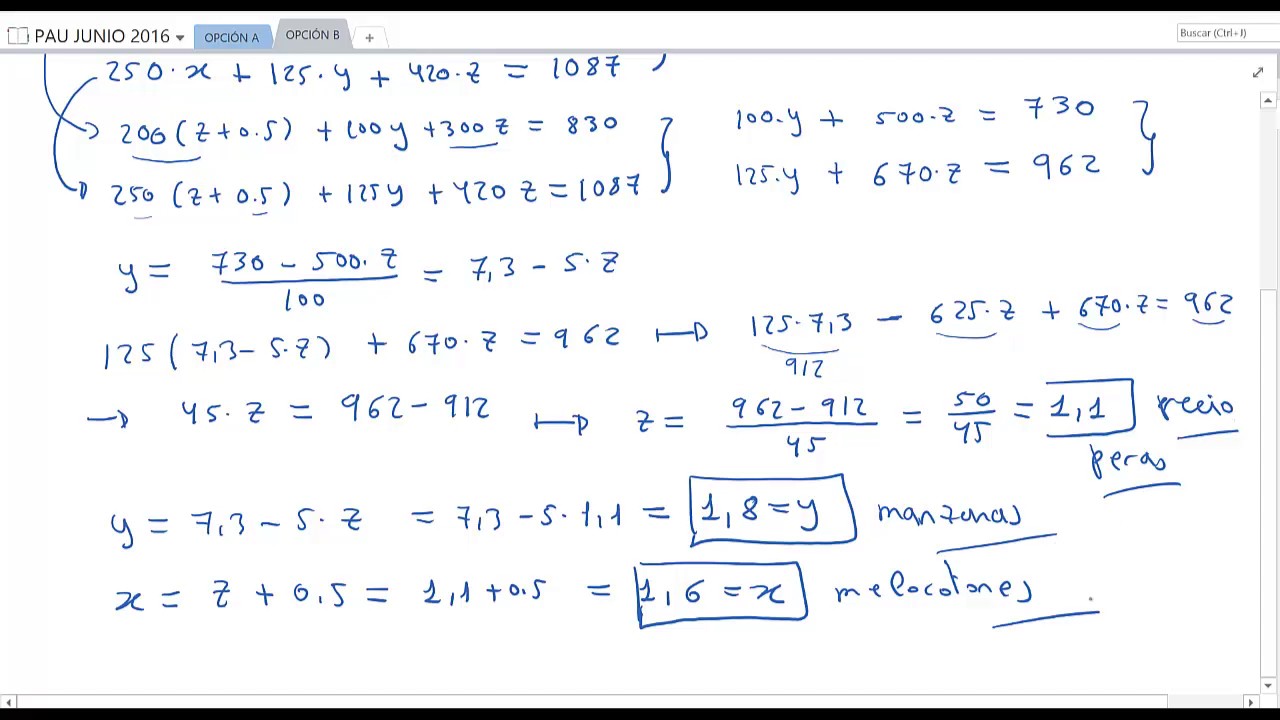 PAU JUNIO 2016 OPCIÓN A OPCIÓN B + Buscar (Ctrl+J)
250·x + 125·y + 420·z = 1087
200(z+0.5) + 100y + 300z = 830
100·y + 500·z = 730
250(z+0.5) + 125y + 420z = 1087
125·y + 670·z = 962
y = 730 - 500·z / 100 = 7,3 - 5·z
125(7,3 - 5·z) + 670·z = 962 ↦ 125·7,3 - 625·z + 670·z = 962
912
→ 45·z = 962 - 912 ↦ z = 962 - 912 / 45 = 50 / 45 = 1,1 precio
peras
y = 7,3 - 5·z = 7,3 - 5·1,1 = 1,8 = y manzanas
x = z + 0.5 = 1,1 + 0.5 = 1,6 = x melocotones